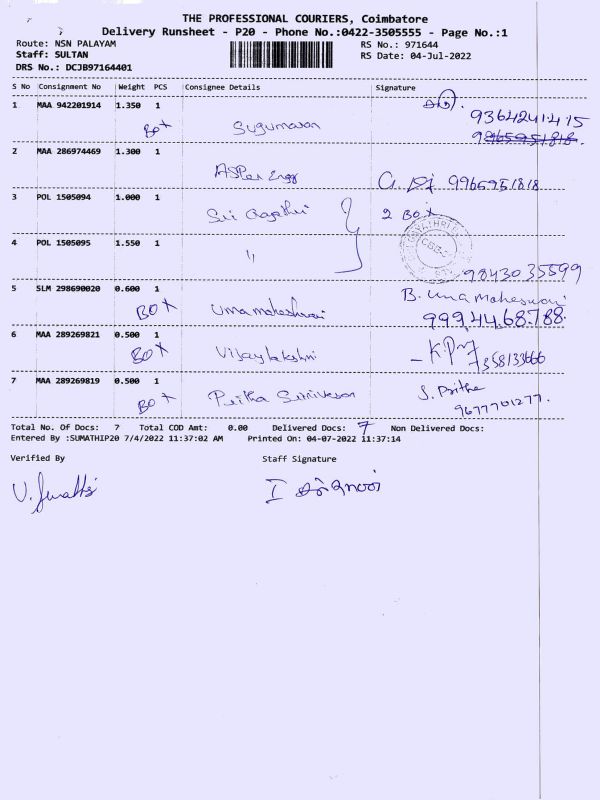 THE PROFESSIONAL COURIERS, Coimbatore
Delivery Runsheet - P20 - Phone No.:0422-3505555 - Page No.:1
Route: NSN PALAYAM
RS No.: 971644
Staff: SULTAN
RS Date: 04-Jul-2022
DRS No.: DCJB97164401
S No Consignment No Weight PCS Consignee Details Signature
1 MAA 942201914 1.350 1
9364241415
BOX Sugumaran 9965951818.
2 MAA 286974469 1.300 1
Engg 9965951818
3 POL 1505094 1.000 1
Sri 2 BOX
4 POL 1505095 1.550 1
"
9843035599
5 SLM 298690020 0.600 1
BOX Umamaheshwari B. Uma Maheswari
999.44.68.788.
6 MAA 289269821 0.500 1
BOX Vijaylakshmi 7358133666
7 MAA 289269819 0.500 1
BOX Pritha Srinivasan S. Pritha
9677701277.
Total No. Of Docs: 7 Total COD Amt: 0.00 Delivered Docs: 7 Non Delivered Docs:
Entered By :SUMATHIP20 7/4/2022 11:37:02 AM Printed On: 04-07-2022 11:37:14
Verified By Staff Signature